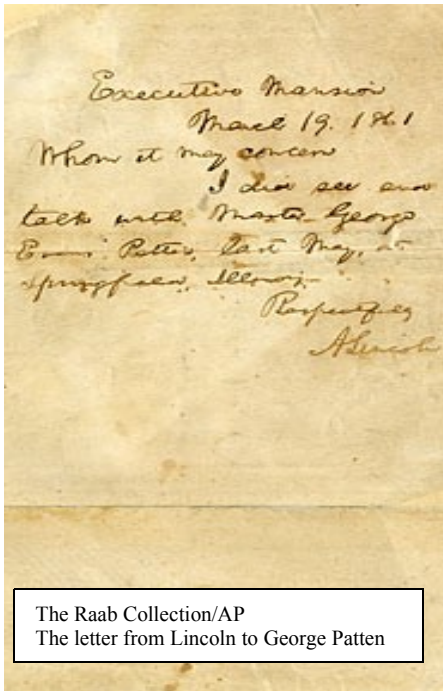 Executive Mansion
March 19. 1861
Whom it may concern
I did see and
talk with Master George
Evans Patten, last May, at
Springfield, Illinois.
Respectfully
A Lincoln
The Raab Collection/AP
The letter from Lincoln to George Patten